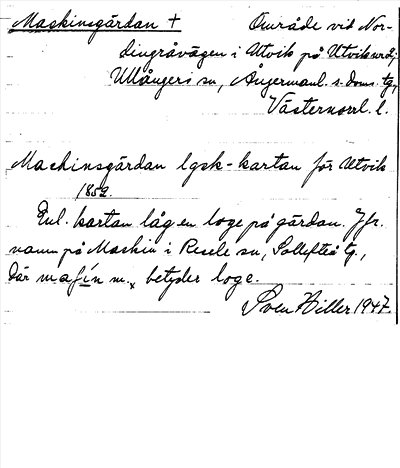 Maskinsgärdan + Område vid Nor-
dingråvägen i Utvik på Utviks urdj.
Ullångers sn, Ångermanl. s. doms. tg,
Västernorrl. l.
Machinsgärdan lgsk-kartan för Utvik
1852.
Enl. kartan låg en loge på gärdan. Jfr.
namn på Maskin i Resele sn, Sollefteå tg.,
där mafin m. betyder loge.
Sven Hiller 1947.